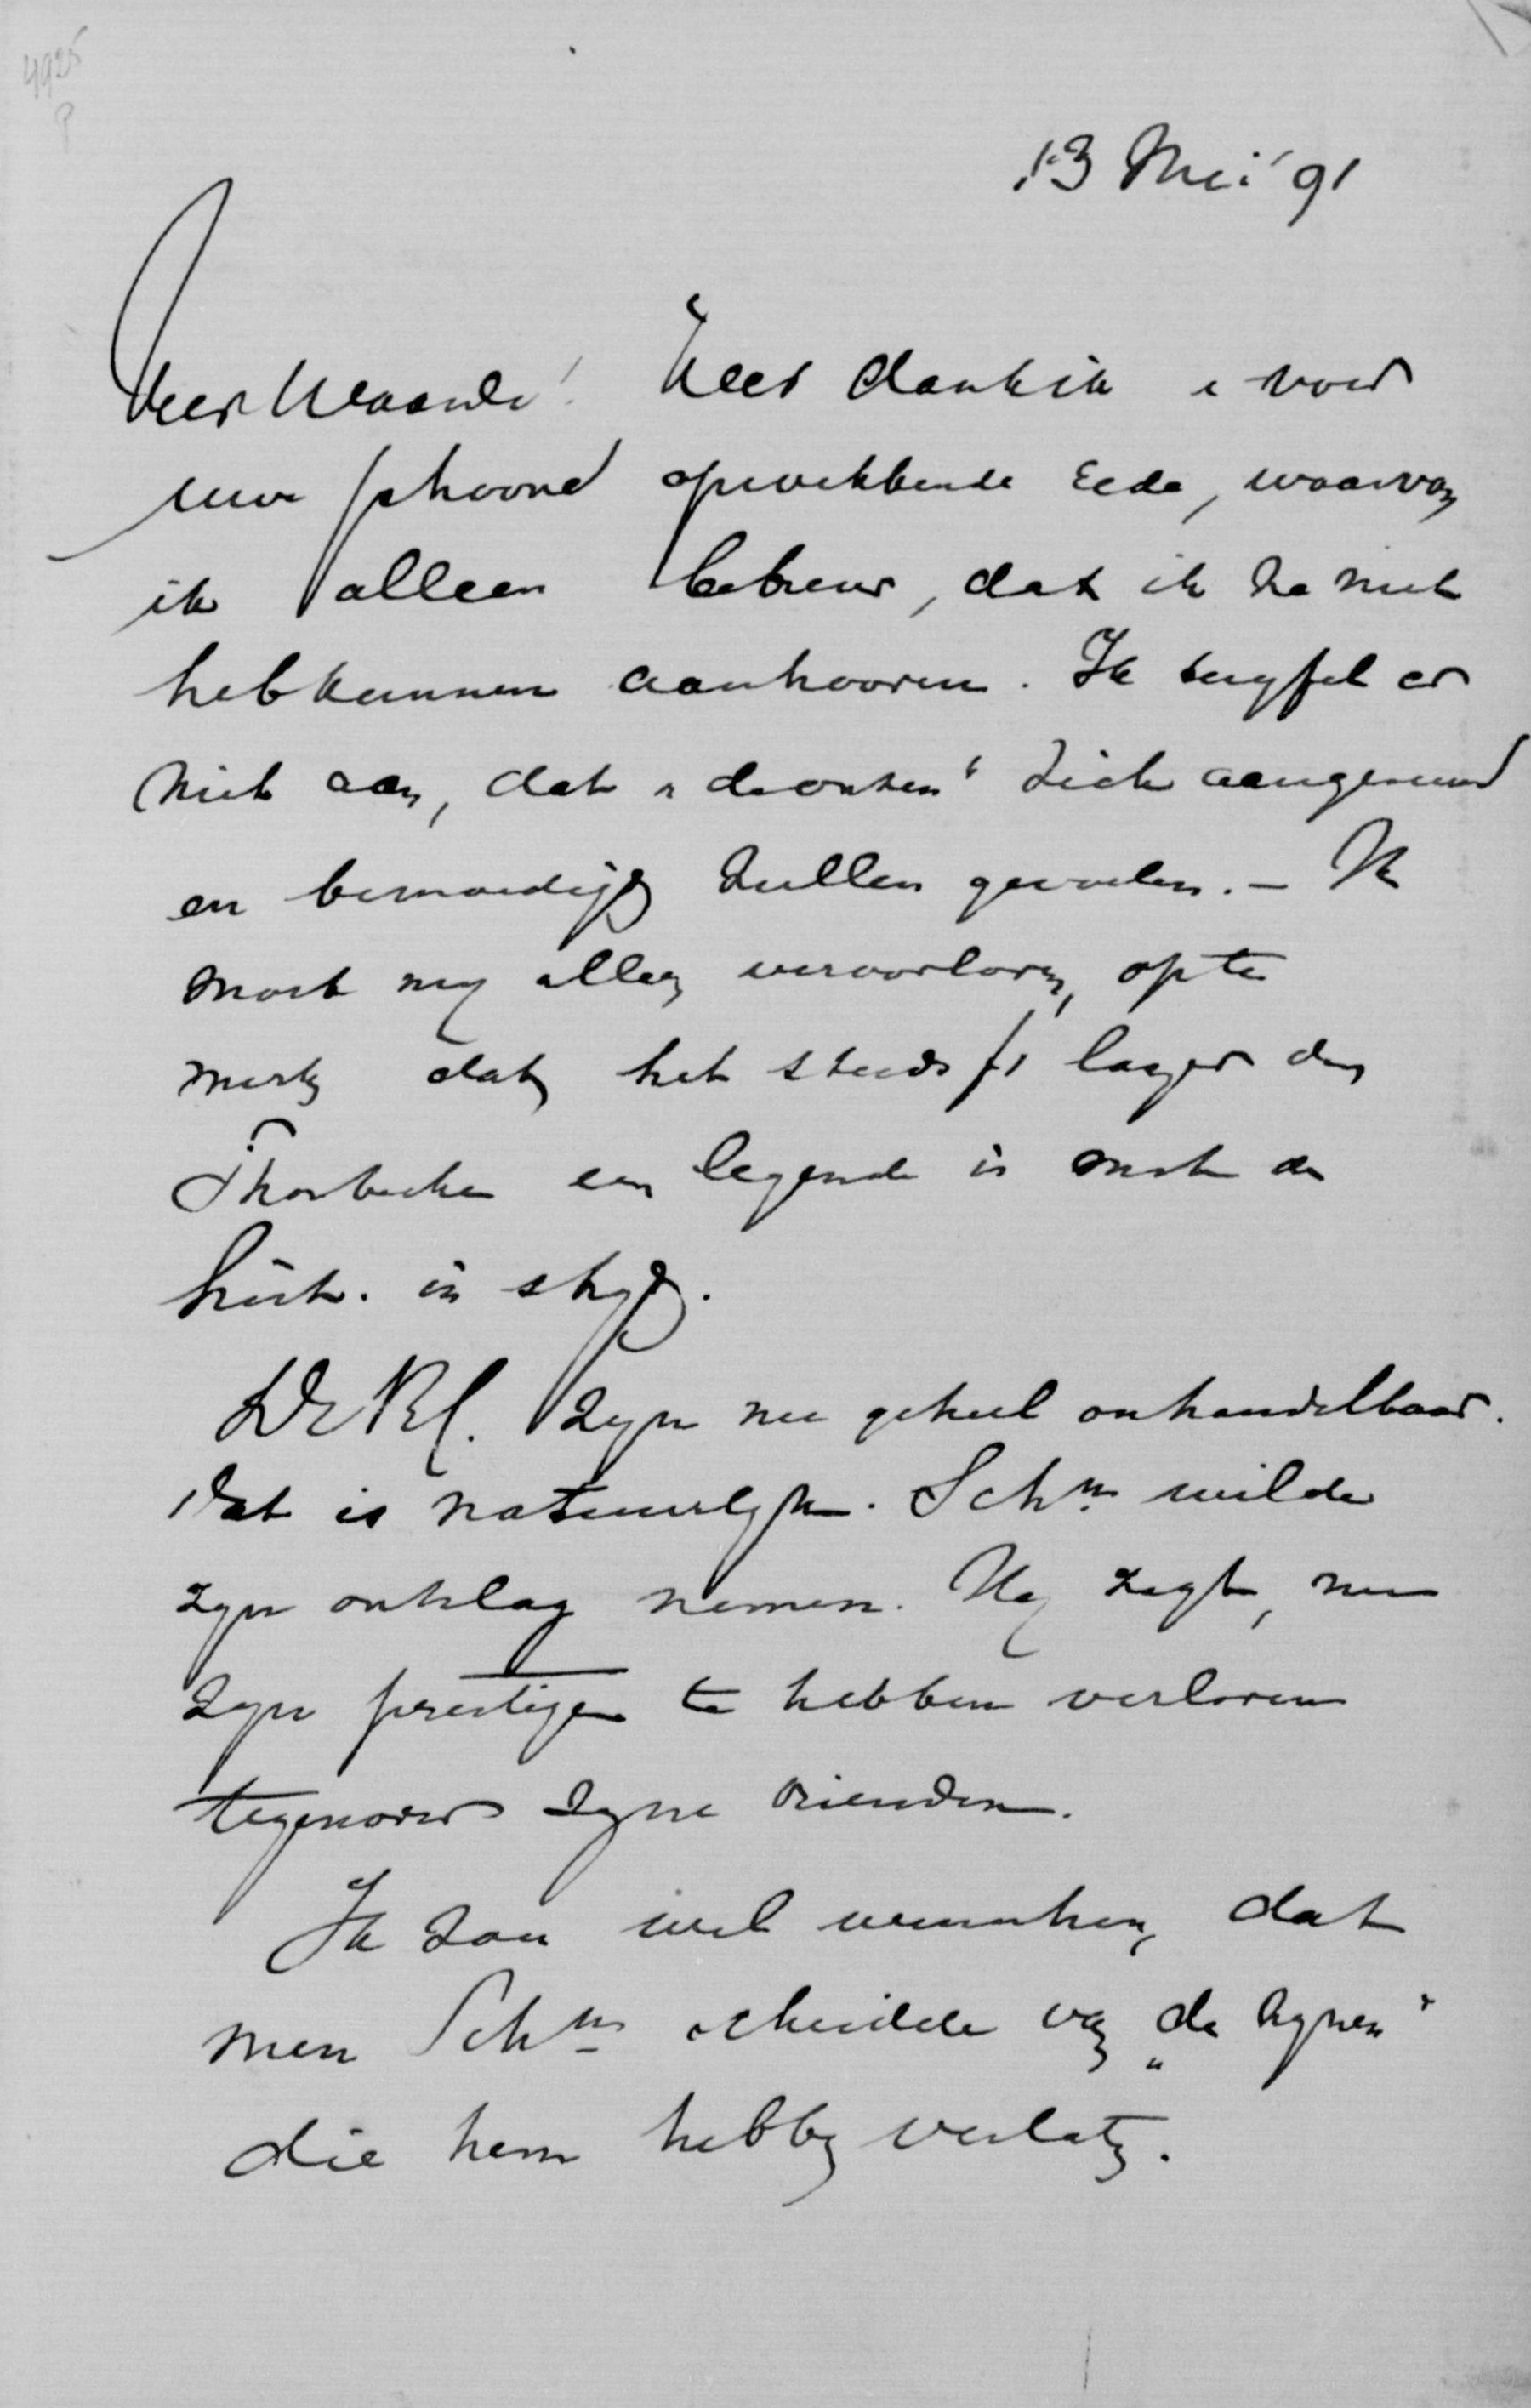 4925
13 Mei '91
Zeer Waarde! Zeer dank ik u voor
uwe schoone opwekkende rede, waarvan
ik alleen betreur, dat ik ze niet
heb kunnen aanhooren. Ik twyfel er
niet aan, dat "de onzen" zich aangevuurd
en bemoedigd zullen gevoelen. – Ik
moet my alleen veroorloven, op te
merken dat het steeds lager dan
Thorbecke een legende is met de
hist. in stryd.
De R.C. zyn nu geheel onhandelbaar.
Dat is natuurlyk. Schn wilde
zyn ontslag nemen. Hy zegt, nu
zyn prestige te hebben verloren
tegenover zyne vrienden.
Ik zou wel wenschen, dat
men Schn scheidde van "de zynen"
die hem hebben verlaten.